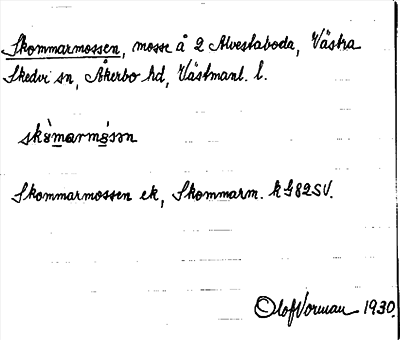 Skommarmossen, mosse å 2 Alvestaboda, Västra
Skedvi sn, Åkerbo hd, Västmanl. l.
Skommarmossen ek, Skommarm. k G82SV.
Olof Vorman 1930.